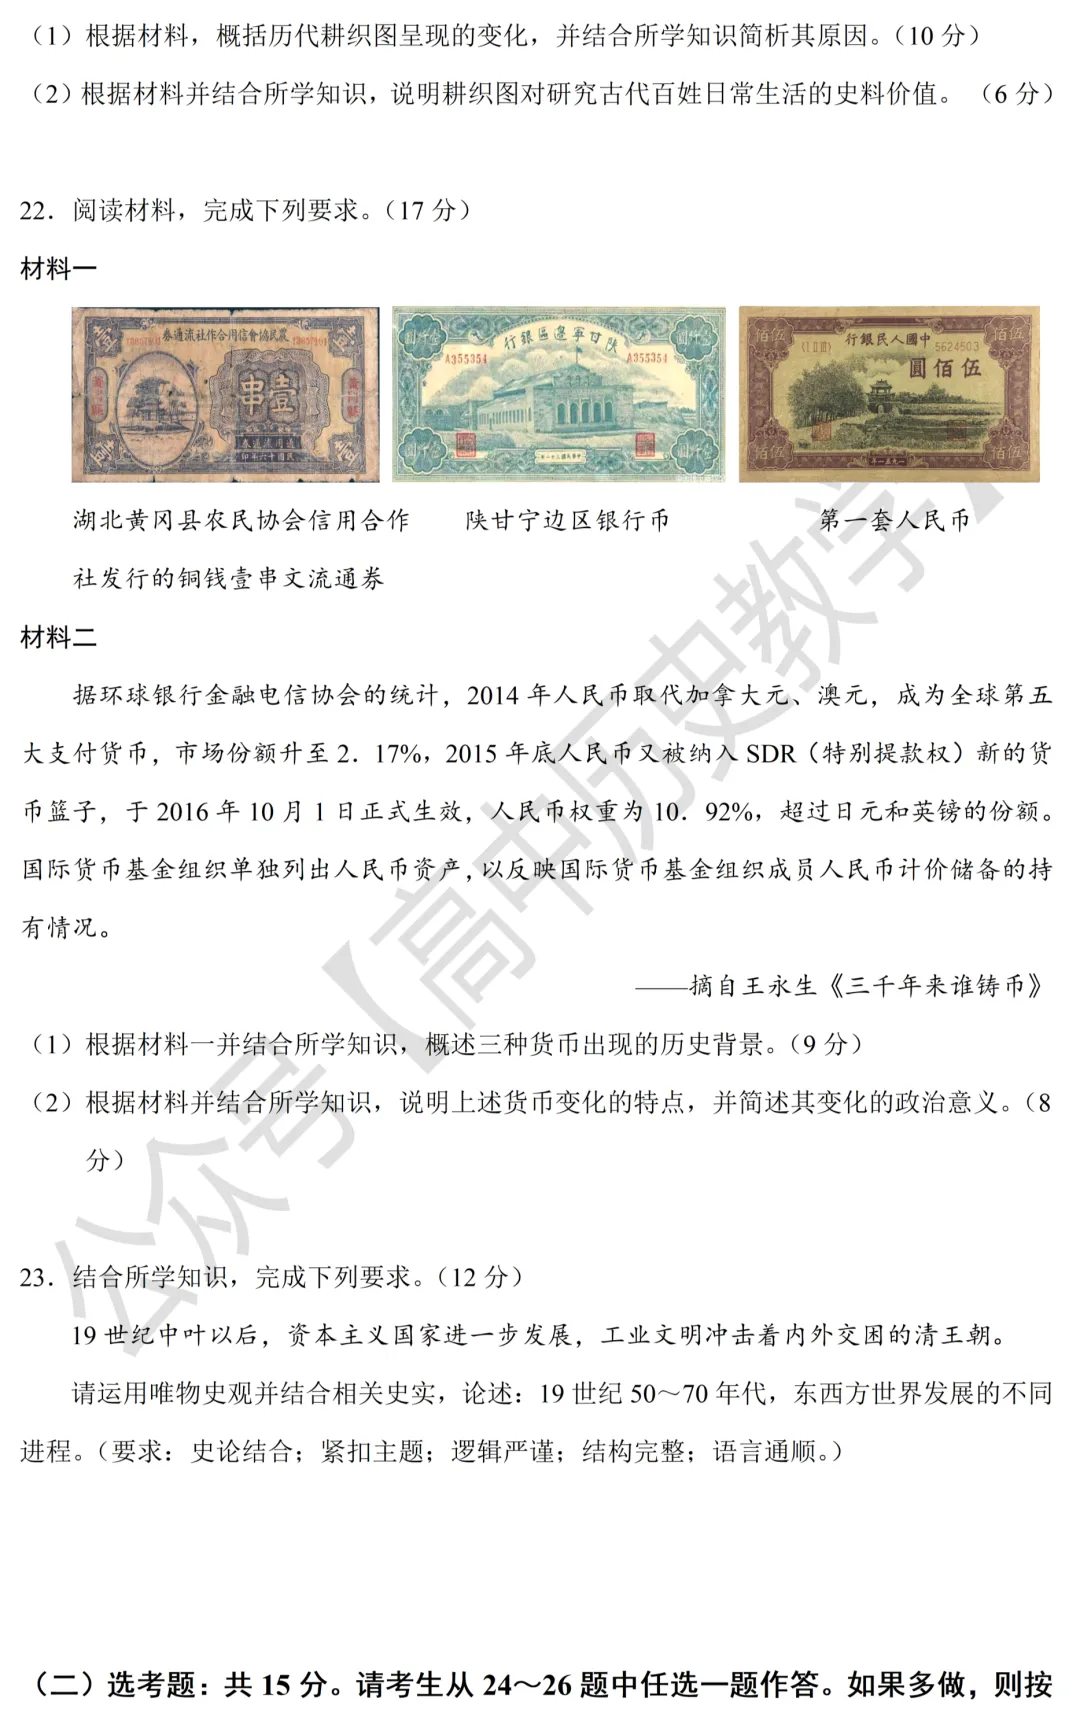 （1）根据材料，概括历代耕织图呈现的变化，并结合所学知识简析其原因。（10 分）
（2）根据材料并结合所学知识，说明耕织图对研究古代百姓日常生活的史料价值。（6 分）
22．阅读材料，完成下列要求。（17 分）
材料一
券通流社作合用信會協民農
壹
壹
黄冈縣
串壹
黄冈縣
印年六十國民
行銀區邊寧甘陝
A355354
A355354
圓仟伍
圓仟伍
行銀民人國中
〈I II III〉
5624503
圓佰伍
佰伍
佰伍
年一五九一
湖北黄冈县农民协会信用合作
社发行的铜钱壹串文流通券
陕甘宁边区银行币
第一套人民币
材料二
据环球银行金融电信协会的统计，2014 年人民币取代加拿大元、澳元，成为全球第五
大支付货币，市场份额升至 2．17%，2015 年底人民币又被纳入 SDR（特别提款权）新的货
币篮子，于 2016 年 10 月 1 日正式生效，人民币权重为 10．92%，超过日元和英镑的份额。
国际货币基金组织单独列出人民币资产，以反映国际货币基金组织成员人民币计价储备的持
有情况。
——摘自王永生《三千年来谁铸币》
（1）根据材料一并结合所学知识，概述三种货币出现的历史背景。（9 分）
（2）根据材料并结合所学知识，说明上述货币变化的特点，并简述其变化的政治意义。（8
分）
23．结合所学知识，完成下列要求。（12 分）
19 世纪中叶以后，资本主义国家进一步发展，工业文明冲击着内外交困的清王朝。
请运用唯物史观并结合相关史实，论述：19 世纪 50～70 年代，东西方世界发展的不同
进程。（要求：史论结合；紧扣主题；逻辑严谨；结构完整；语言通顺。）
（二）选考题：共 15 分。请考生从 24～26 题中任选一题作答。如果多做，则按
公众号【高中历史教学】